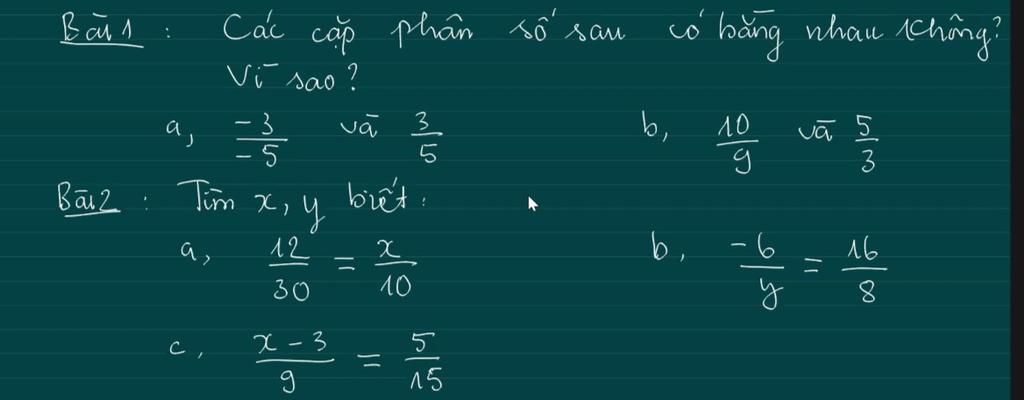 Bài 1 : Các cặp phân số sau có bằng nhau không?
Vì sao?
a, -3/-5 và 3/5 b, 10/9 và 5/3
Bài 2 : Tìm x, y biết :
a, 12/30 = x/10 b, -6/y = 16/8
c, (x - 3)/9 = 5/15